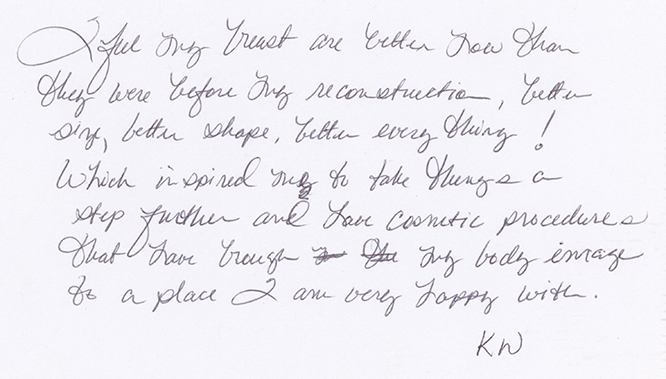 I feel my breast are better now than
they were before my reconstruction, better
size, better shape, better every thing!
Which inspired my to take things a
step further and have cosmetic procedures
that have brough my body image
to a place I am very happy with.
KW